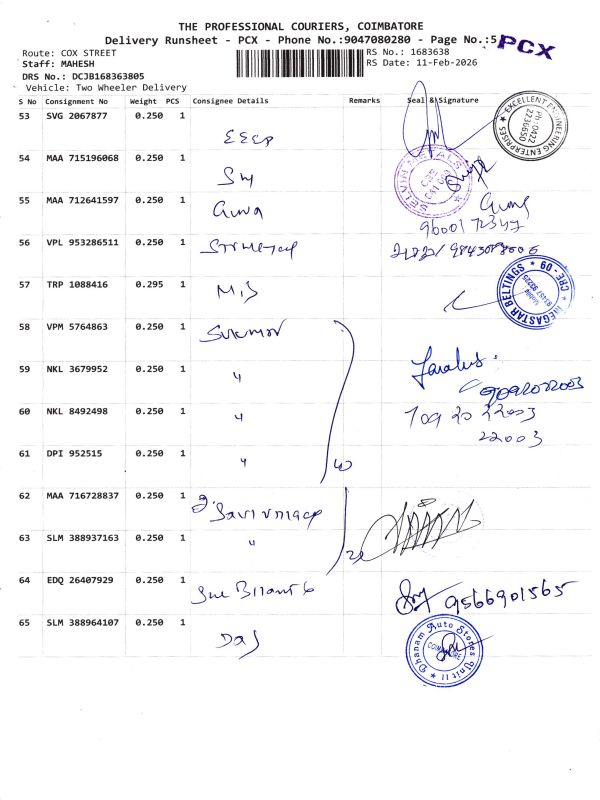 THE PROFESSIONAL COURIERS, COIMBATORE
Delivery Runsheet - PCX - Phone No.:9047080280 - Page No.:5
PCX
Route: COX STREET
RS No.: 1683638
Staff: MAHESH
RS Date: 11-Feb-2026
DRS No.: DCJB168363805
Vehicle: Two Wheeler Delivery
S No Consignment No Weight PCS Consignee Details Remarks Seal & Signature
53 SVG 2067877 0.250 1
EXCELLENT ENGINEERING ENTERPRISES
Ph: 0422
2236650
54 MAA 715196068 0.250 1
SELVIN METALS
CBE
641 009
55 MAA 712641597 0.250 1 Guna
Guna
9600172347
56 VPL 953286511 0.250 1
57 TRP 1088416 0.295 1 M.S
MEGASTAR BELTINGS * CBE-09 *
58 VPM 5764863 0.250 1
59 NKL 3679952 0.250 1 "
9092022003
60 NKL 8492498 0.250 1 "
709 20 22003
22003
61 DPI 952515 0.250 1 "
62 MAA 716728837 0.250 1
63 SLM 388937163 0.250 1 "
64 EDQ 26407929 0.250 1
9566901565
65 SLM 388964107 0.250 1 Das
Dhanam Auto Stores Unit II
COIMBATORE